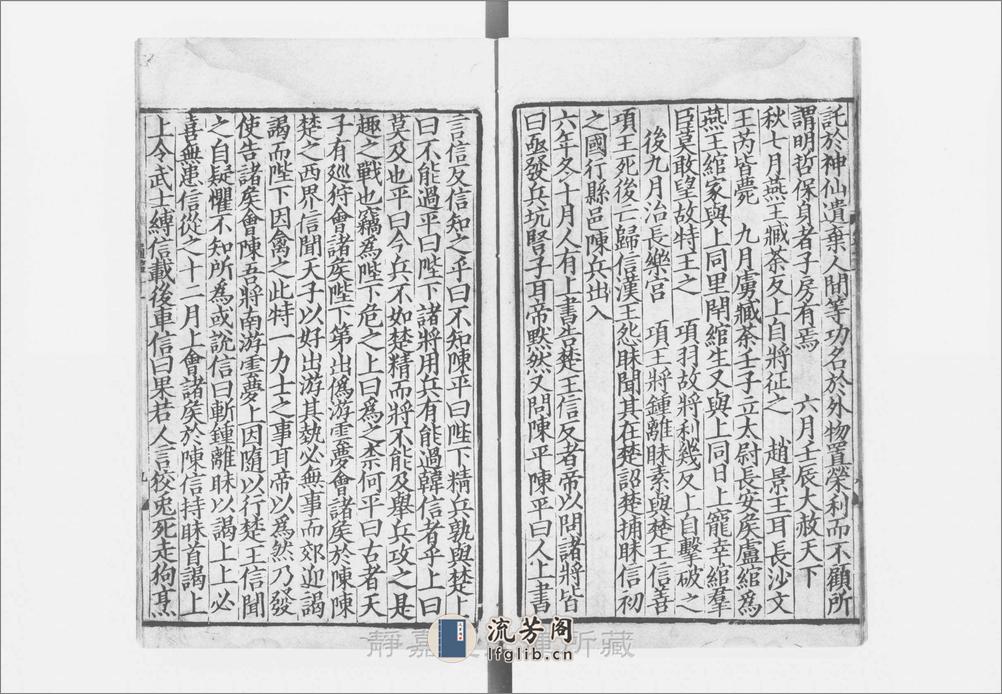 託於神仙遺棄人閒等功名於外物置榮利而不顧所
謂明哲保身者子房有焉　六月壬辰大赦天下
秋七月燕王臧荼反上自將征之　趙景王耳長沙文
王芮皆薨　九月虜臧荼壬子立太尉長安矦盧綰爲
燕王綰家與上同里閈綰生又與上同日上寵幸綰羣
臣莫敢望故特王之　項羽故將利幾反上自擊破之
後九月治長樂宮　項王將鍾離昧素與楚王信善
項王死後亡歸信漢王怨昧聞其在楚詔楚捕昧信初
之國行縣邑陳兵出入
六年冬十月人有上書告楚王信反者帝以問諸將皆
曰亟發兵坑豎子耳帝默然又問陳平陳平曰人上書
言信反信知之乎曰不知陳平曰陛下精兵孰與楚上
曰不能過平曰陛下諸將用兵有能過韓信者乎上曰
莫及也平曰今兵不如楚精而將不能及舉兵攻之是
趣之戰也竊爲陛下危之上曰爲之柰何平曰古者天
子有巡狩會諸矦陛下第出僞游雲夢會諸矦於陳陳
楚之西界信聞天子以好出游其埶必無事而郊迎謁
謁而陛下因禽之此特一力士之事耳帝以爲然乃發
使告諸矦會陳吾將南游雲夢上因隨以行楚王信聞
之自疑懼不知所爲或說信曰斬鍾離昧以謁上上必
喜無患信從之十二月上會諸矦於陳信持昧首謁上
上令武士縛信載後車信曰果若人言狡兎死走狗烹
九
流芳阁
lfglib.cn
靜嘉 所藏